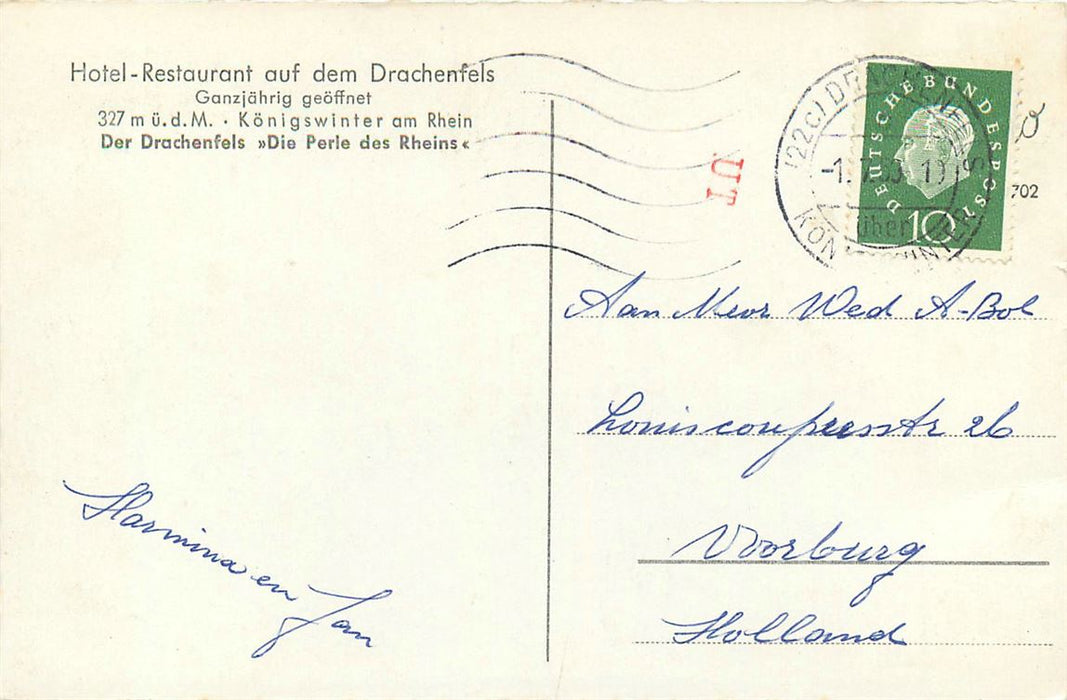 Hotel-Restaurant auf dem Drachenfels
Ganzjährig geöffnet
327 m ü.d.M. · Königswinter am Rhein
Der Drachenfels »Die Perle des Rheins«
UT
DEUTSCHE BUNDESPOST
10
702
Aan Mevr Wed A-Bol
Louiscouperusstr 26
Voorburg
Holland
Harmina en
Jan